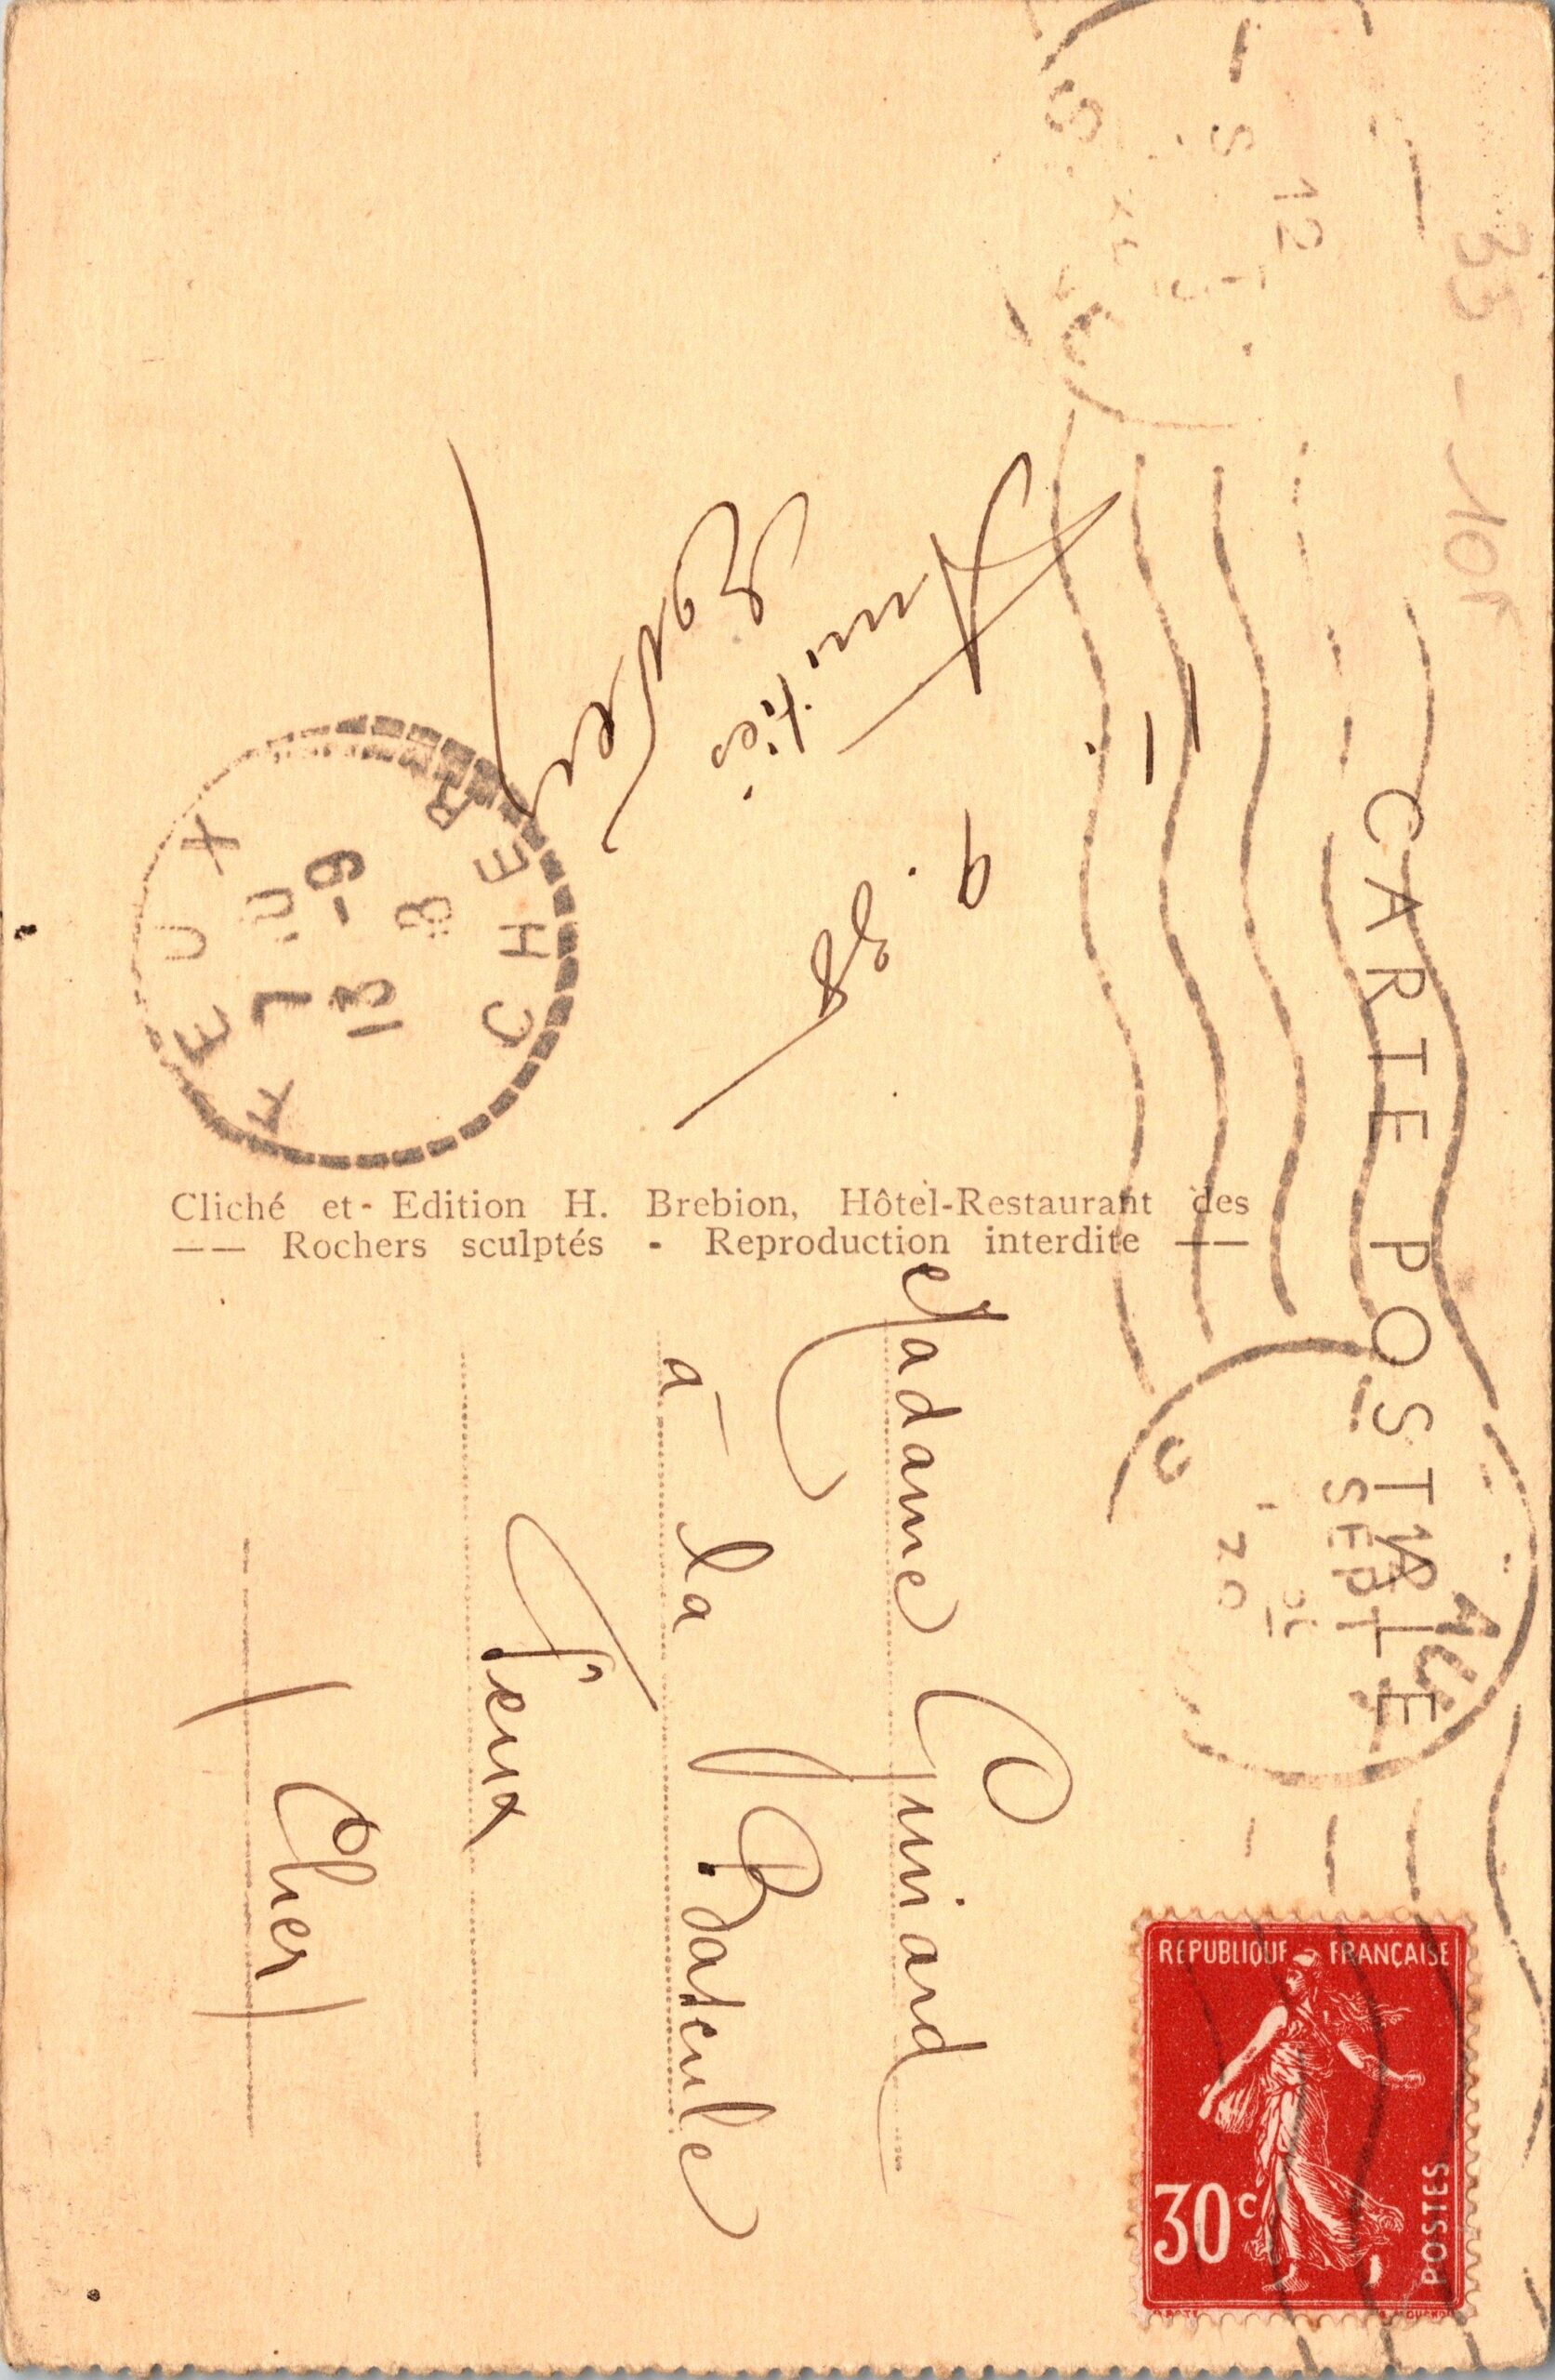 CARTE POSTALE
35 - 10F
Amitiés
Cliché et - Edition H. Brebion, Hôtel-Restaurant des
—— Rochers sculptés - Reproduction interdite ——
Madame Guniard
à la Bascule
Feux
(Cher)
REPUBLIQUE FRANÇAISE
30c
POSTES
FEUX
CHER
13 -9
12
SEPT